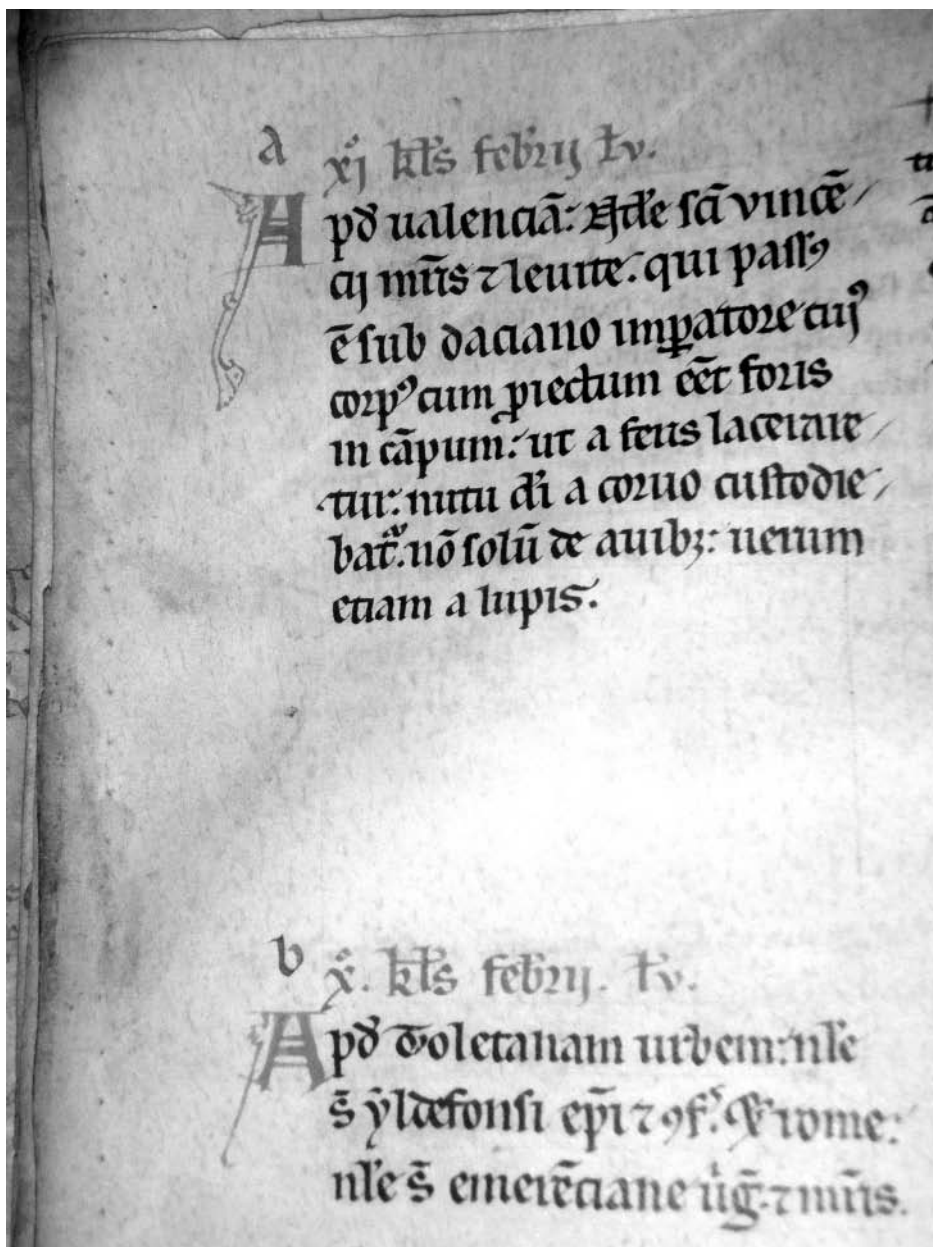 a
xj kłs febrij
Apđ ualenciā: sc̄i vincē
cij mr̄is ⁊ leuite. qui passꝰ
ē sub daciano imꝑatore cuiꝰ
corpꝰ cum ꝓiectum eēt foris
in cāpum: ut a feris lacerare
tur: nutu dī a coruo custodie
bat᷑. nō solū de auibꝫ: uerum
etiam a lupis.
b
x. kłs febrij.
Apđ toletanam urbem: nłe
s̄ yldefonsi ep̄i ⁊ ꝯf. rome:
nłe s̄ emerēciane uiḡ. ⁊ mr̄is.